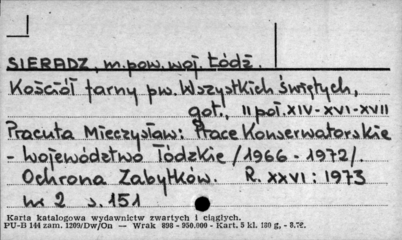 SIERADZ, m. pow. woj. Łódź.
Kościół farny pw. Wszystkich Świętych,
got., II poł. XIV-XVI-XVII
Pracuta Mieczysław: Prace Konserwatorskie
- województwo Łódzkie /1966-1972/.
Ochrona Zabytków. R. XXVI: 1973
nr 2 s. 151
Karta katalogowa wydawnictw zwartych i ciągłych.
PU-B 144 zam. 1209/Dw/On — Wrak 898 - 950.000 - Kart. 5 kl. 180 g,